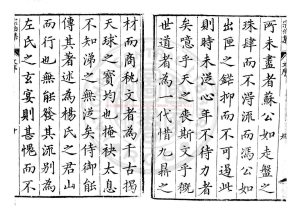 所未盡者蘇公如走盤之
珠肆而不滯流而馮公如
出匣之錯抑而不可遏此
則時未逆心年不待力者
矣噫乎天之喪斯文乎慨
世道者為一代惜九鼎之
材而商秘文者為千古揭
天球之寶均也掩袂太息
不知涕之無從矣侍御能
傳其著述為楊氏之君山
而行也無能發其流別為
左氏之玄宴則甚愧而不